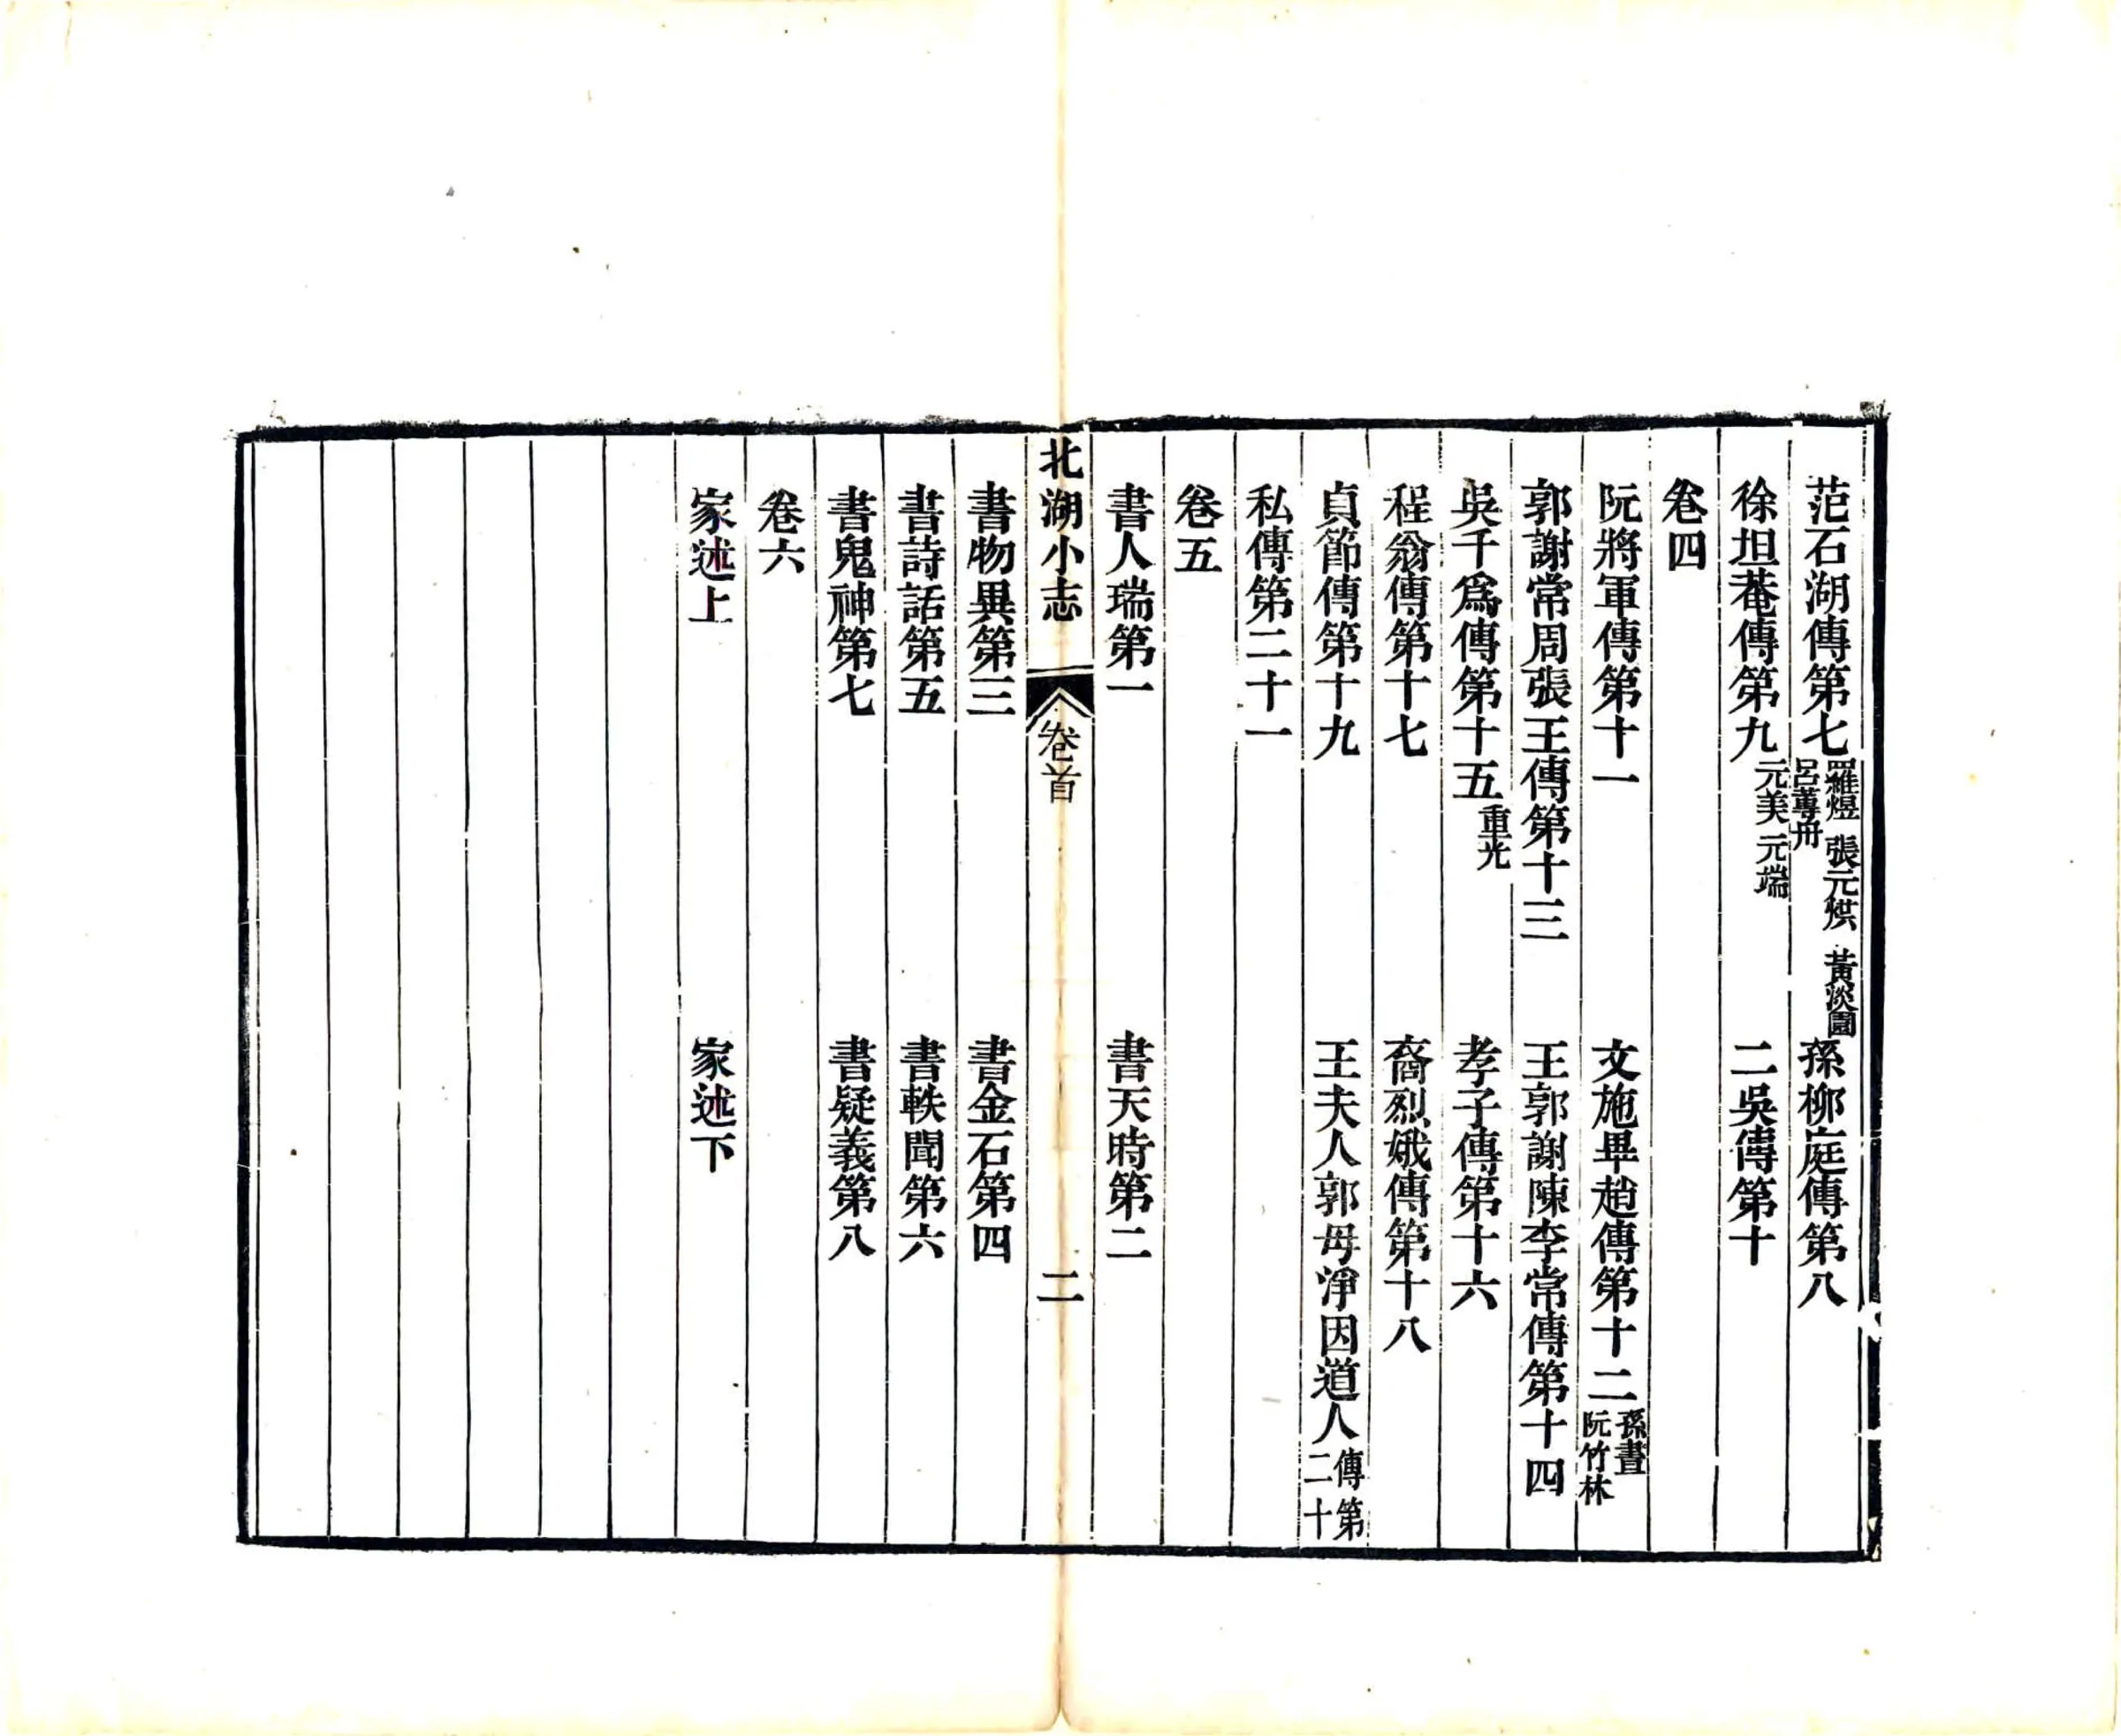 范石湖傳第七羅煜 張元烘 黃淡園 呂蓴冊 孫柳庭傳第八
徐坦菴傳第九元美 元端 二吳傳第十
卷四
阮將軍傳第十一 文施畢趙傳第十二孫晝 阮竹林
郭謝常周張王傳第十三 王郭謝陳李常傳第十四
吳千爲傳第十五重光 孝子傳第十六
程翁傳第十七 裔烈娥傳第十八
貞節傳第十九 王夫人郭母淨因道人傳第二十
私傳第二十一
卷五
書人瑞第一 書天時第二
北湖小志 卷首 二
書物異第三 書金石第四
書詩話第五 書軼聞第六
書鬼神第七 書疑義第八
卷六
家述上 家述下